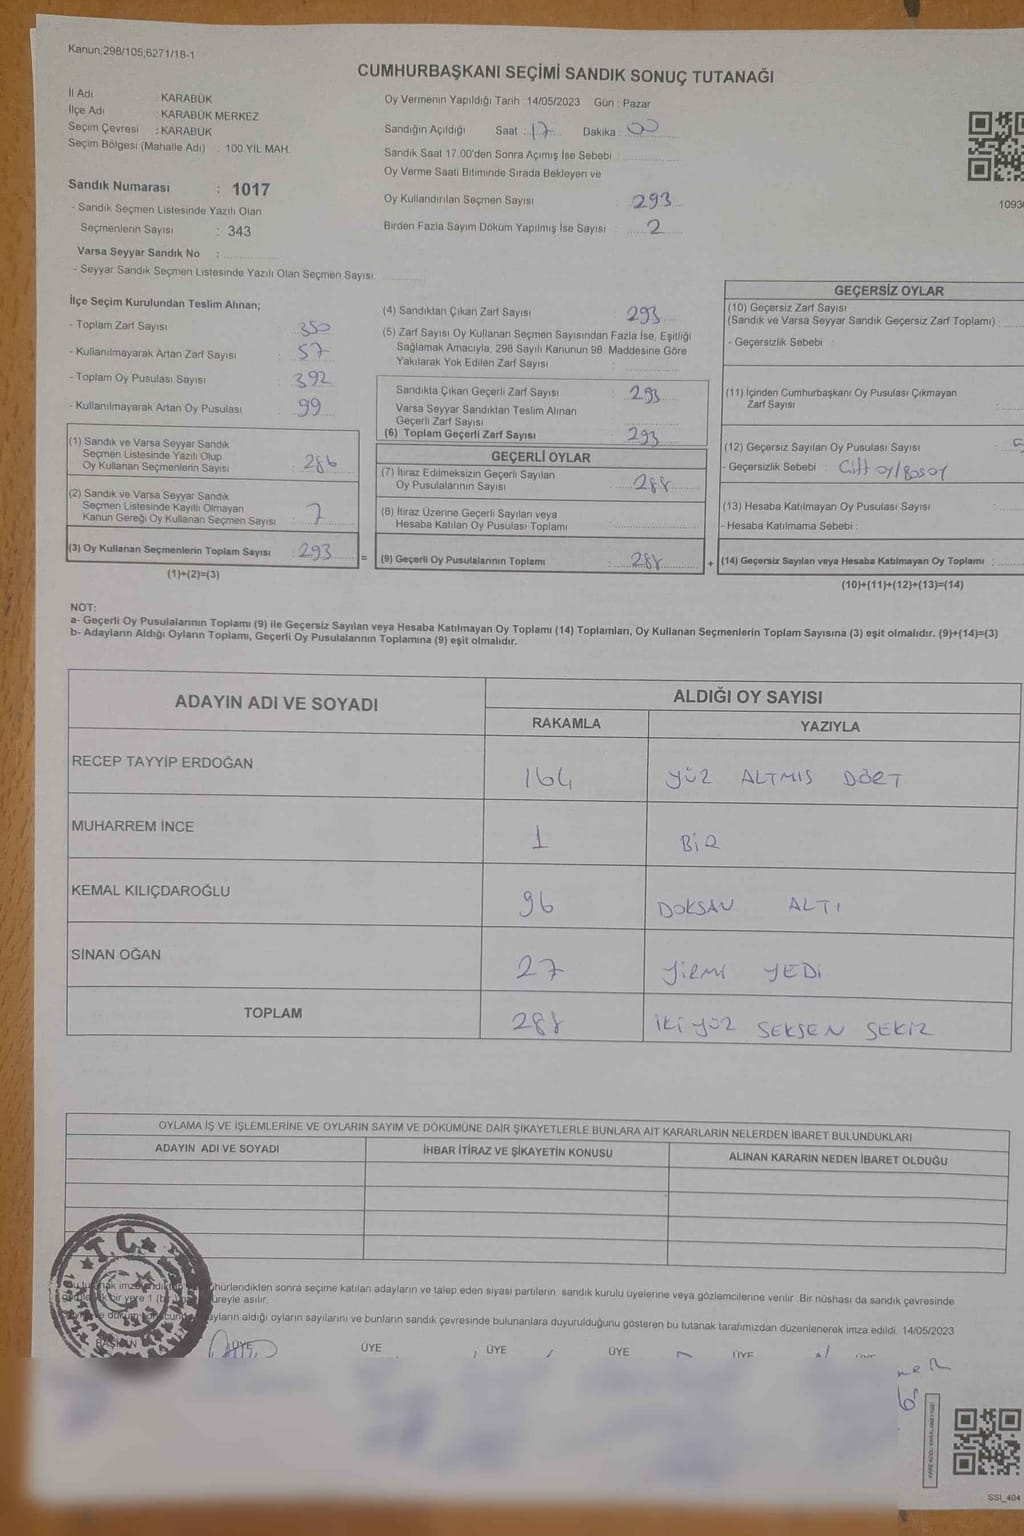 Kanun;298/105;6271/18-1
CUMHURBAŞKANI SEÇİMİ SANDIK SONUÇ TUTANAĞI
İl Adı : KARABÜK
İlçe Adı : KARABÜK MERKEZ
Seçim Çevresi : KARABÜK
Seçim Bölgesi (Mahalle Adı) : 100.YIL MAH.
Sandık Numarası : 1017
- Sandık Seçmen Listesinde Yazılı Olan
Seçmenlerin Sayısı : 343
Varsa Seyyar Sandık No :
- Seyyar Sandık Seçmen Listesinde Yazılı Olan Seçmen Sayısı:
Oy Vermenin Yapıldığı Tarih : 14/05/2023 Gün : Pazar
Sandığın Açıldığı Saat : 17 Dakika : 00
Sandık Saat 17.00'den Sonra Açımış İse Sebebi :
Oy Verme Saati Bitiminde Sırada Bekleyen ve
Oy Kullandırılan Seçmen Sayısı : 293
Birden Fazla Sayım Döküm Yapılmış İse Sayısı : 2
1093
İlçe Seçim Kurulundan Teslim Alınan;
- Toplam Zarf Sayısı : 350
- Kullanılmayarak Artan Zarf Sayısı : 57
- Toplam Oy Pusulası Sayısı : 392
- Kullanılmayarak Artan Oy Pusulası : 99
(1) Sandık ve Varsa Seyyar Sandık
Seçmen Listesinde Yazılı Olup
Oy Kullanan Seçmenlerin Sayısı : 286
(2) Sandık ve Varsa Seyyar Sandık
Seçmen Listesinde Kayıtlı Olmayan
Kanun Gereği Oy Kullanan Seçmen Sayısı : 7
(3) Oy Kullanan Seçmenlerin Toplam Sayısı : 293 =
(1)+(2)=(3)
(4) Sandıktan Çıkan Zarf Sayısı : 293
(5) Zarf Sayısı Oy Kullanan Seçmen Sayısından Fazla İse, Eşitliği
Sağlamak Amacıyla, 298 Sayılı Kanunun 98. Maddesine Göre
Yakılarak Yok Edilen Zarf Sayısı :
Sandıkta Çıkan Geçerli Zarf Sayısı : 293
Varsa Seyyar Sandıktan Teslim Alınan
Geçerli Zarf Sayısı :
(6) Toplam Geçerli Zarf Sayısı : 293
GEÇERLİ OYLAR
(7) İtiraz Edilmeksizin Geçerli Sayılan
Oy Pusulalarının Sayısı : 288
(8) İtiraz Üzerine Geçerli Sayılan veya
Hesaba Katılan Oy Pusulası Toplamı :
(9) Geçerli Oy Pusulalarının Toplamı : 288 +
GEÇERSİZ OYLAR
(10) Geçersiz Zarf Sayısı
(Sandık ve Varsa Seyyar Sandık Geçersiz Zarf Toplamı) :
- Geçersizlik Sebebi :
(11) İçinden Cumhurbaşkanı Oy Pusulası Çıkmayan
Zarf Sayısı :
(12) Geçersiz Sayılan Oy Pusulası Sayısı
- Geçersizlik Sebebi : Çift oy/Boş oy
(13) Hesaba Katılmayan Oy Pusulası Sayısı :
- Hesaba Katılmama Sebebi :
(14) Geçersiz Sayılan veya Hesaba Katılmayan Oy Toplamı :
(10)+(11)+(12)+(13)=(14)
NOT:
a- Geçerli Oy Pusulalarının Toplamı (9) ile Geçersiz Sayılan veya Hesaba Katılmayan Oy Toplamı (14) Toplamları, Oy Kullanan Seçmenlerin Toplam Sayısına (3) eşit olmalıdır. (9)+(14)=(3)
b- Adayların Aldığı Oyların Toplamı, Geçerli Oy Pusulalarının Toplamına (9) eşit olmalıdır.
ADAYIN ADI VE SOYADI ALDIĞI OY SAYISI
RAKAMLA YAZIYLA
RECEP TAYYİP ERDOĞAN 164 YÜZ ALTMIŞ DÖRT
MUHARREM İNCE 1 BİR
KEMAL KILIÇDAROĞLU 96 DOKSAN ALTI
SİNAN OĞAN 27 YİRMİ YEDİ
TOPLAM 288 İKİ YÜZ SEKSEN SEKİZ
OYLAMA İŞ VE İŞLEMLERİNE VE OYLARIN SAYIM VE DÖKÜMÜNE DAİR ŞİKAYETLERLE BUNLARA AİT KARARLARIN NELERDEN İBARET BULUNDUKLARI
ADAYIN ADI VE SOYADI İHBAR İTİRAZ VE ŞİKAYETİN KONUSU ALINAN KARARIN NEDEN İBARET OLDUĞU
T.C.
sonra seçime katılan adayların ve talep eden siyasi partilerin sandık kurulu üyelerine veya gözlemcilerine verilir. Bir nüshası da sandık çevresinde
bir yere 1 süreyle asılır.
aldığı oyların sayılarını ve bunların sandık çevresinde bulunanlara duyurulduğunu gösteren bu tutanak tarafımızdan düzenlenerek imza edildi. 14/05/2023
BAŞKAN ÜYE ÜYE ÜYE ÜYE ÜYE
SSI_404